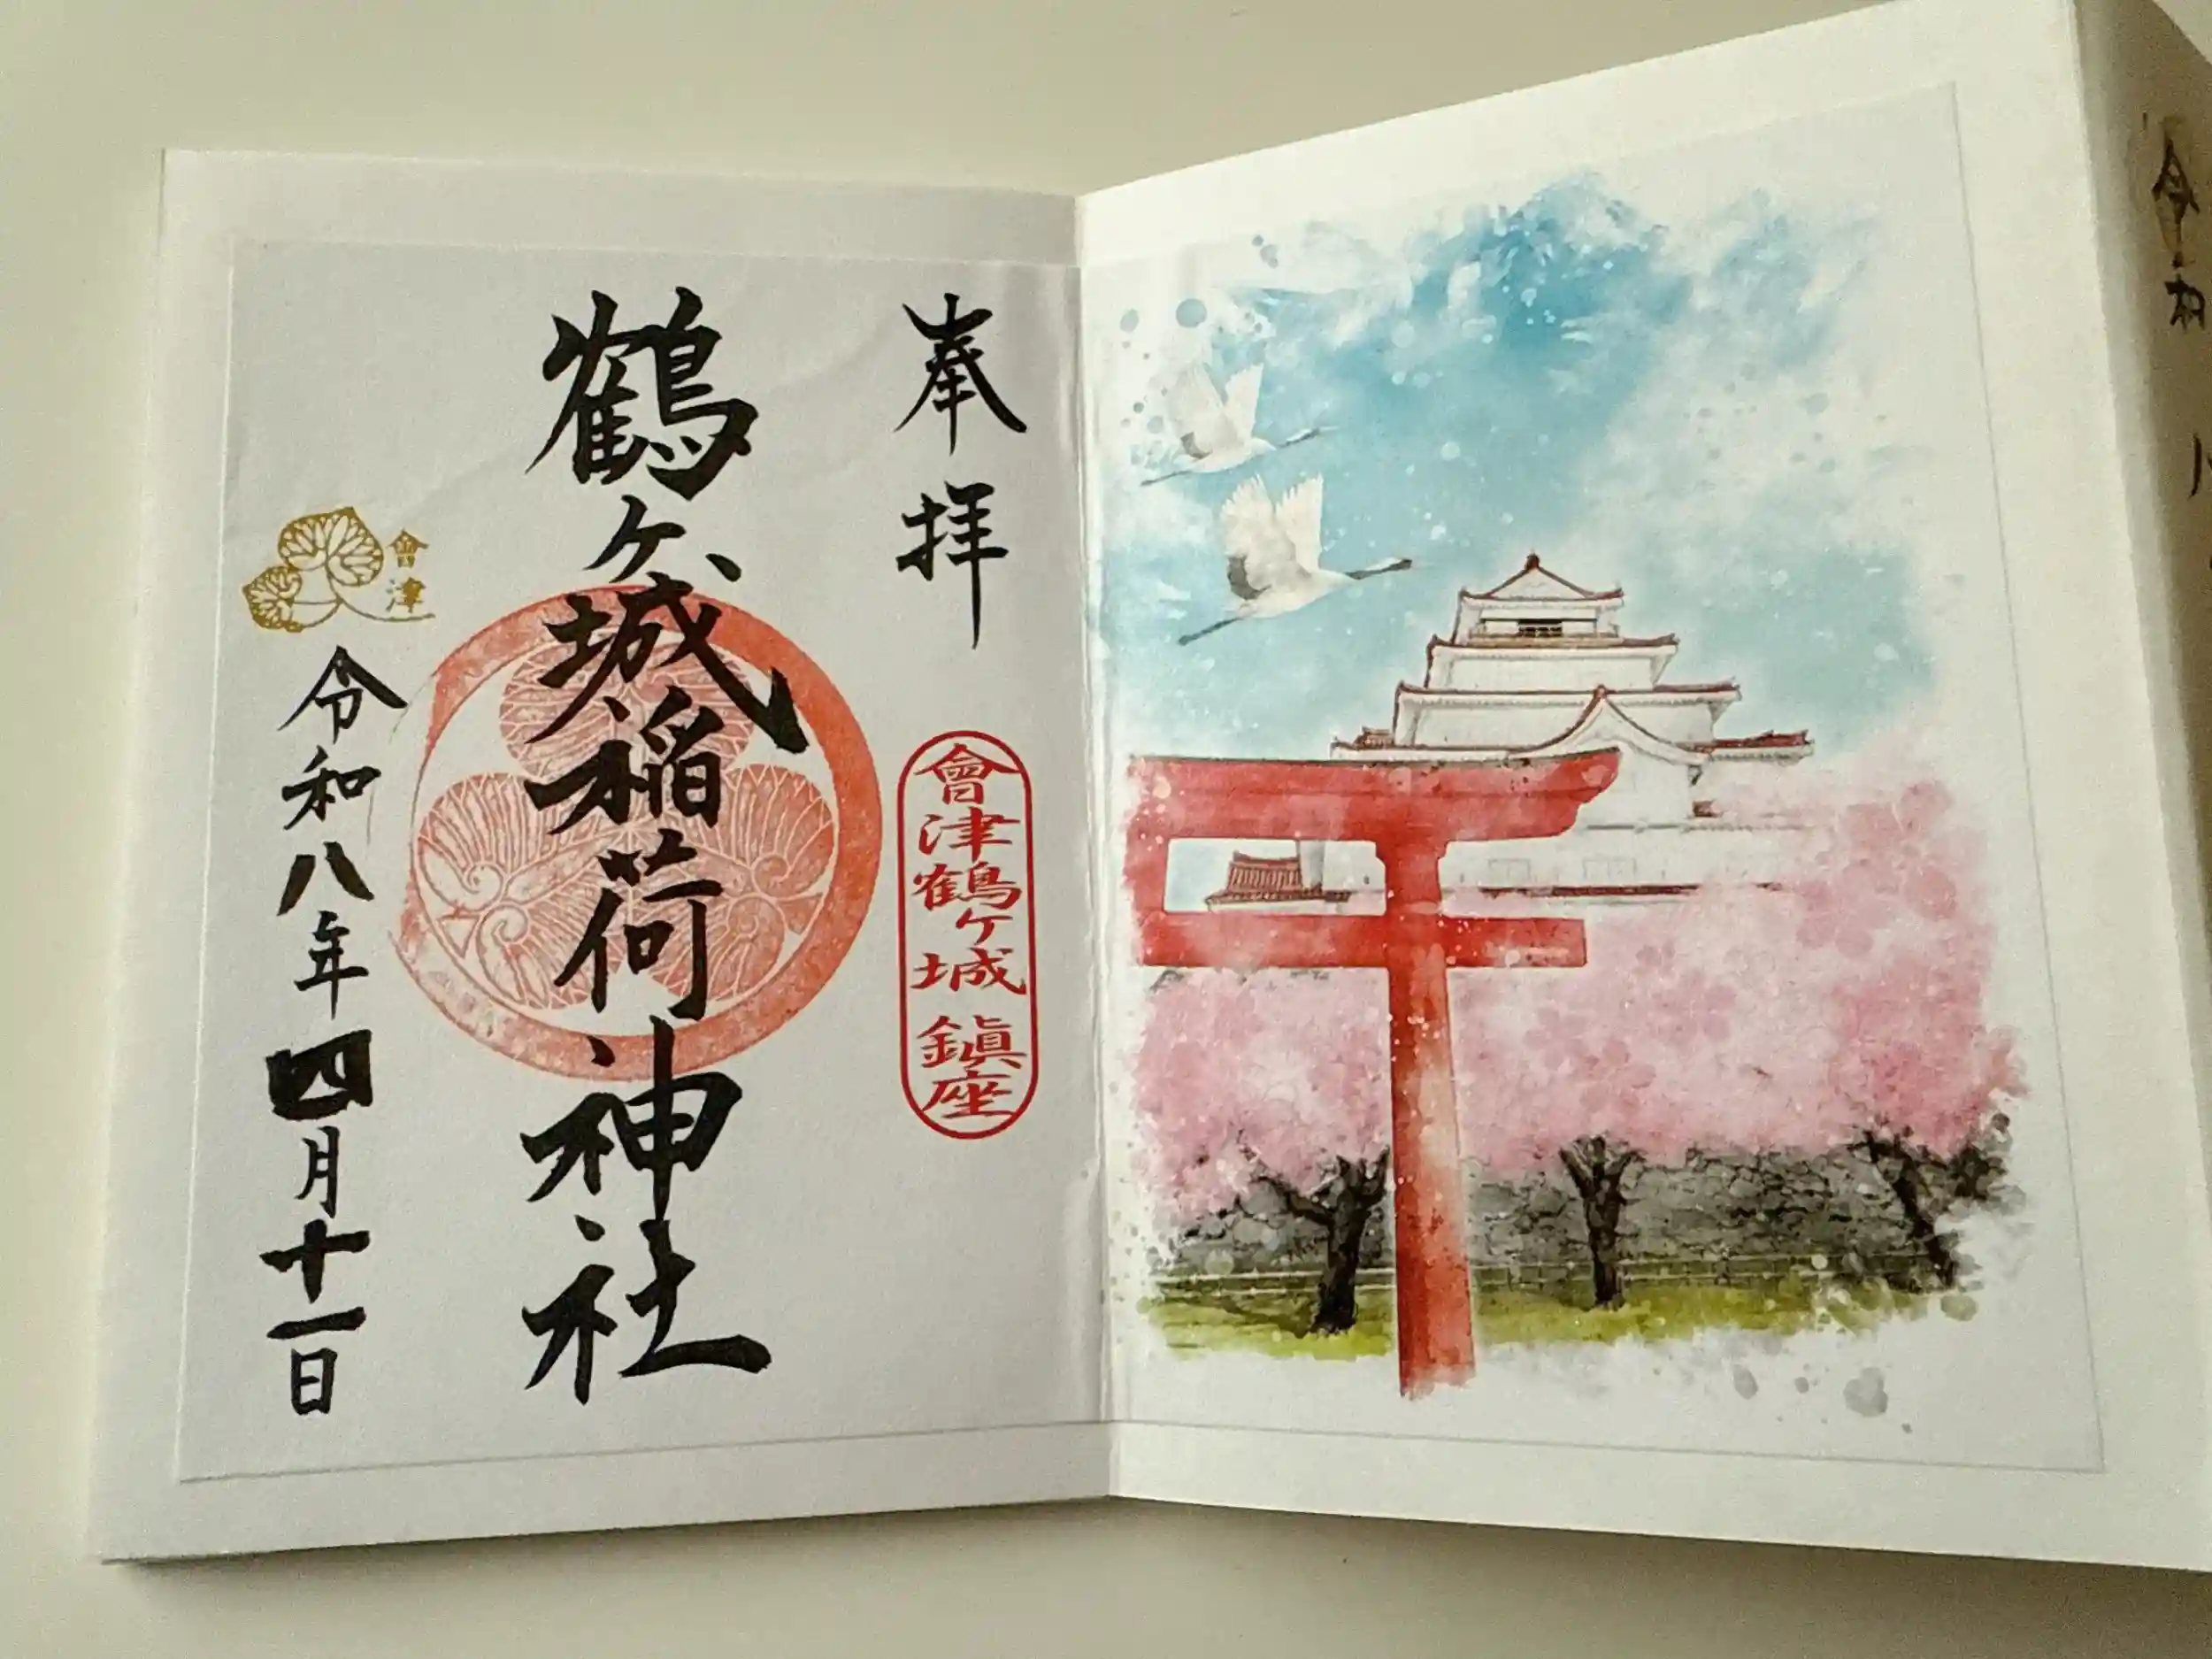 奉拝
會津鶴ヶ城鎮座
鶴ヶ城稲荷神社
會津
令和八年四月十一日
令和